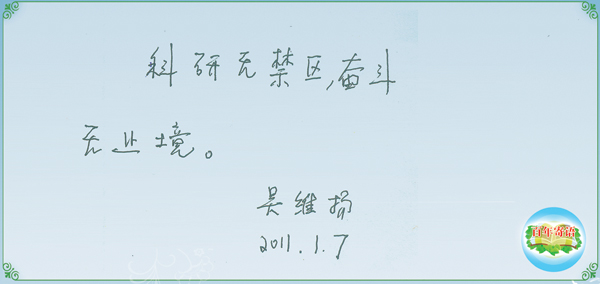 科研无禁区,奋斗
无止境。
吴维扬
2011.1.7
百年寄语